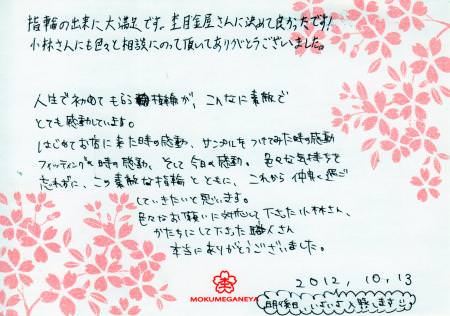 指輪の出来に大満足です。杢目金屋さんに決めて良かったです!
小林さんにも色々と相談にのって頂いてありがとうございました。
人生で初めてもらう指輪が、こんなに素敵で
とても感動しています。
はじめてお店に来た時の感動、サンプルをつけてみた時の感動
フィッティングの時の感動、そして今日の感動。色々な気持ちを
忘れずに、この素敵な指輪とともに、これから仲良く過ごし
ていきたいと思います。
色々なお願いに対応して下さった小林さん、
かたちにして下さった職人さん
本当にありがとうございました。
2012,10,13
明後日、いよいよ入籍します!!
MOKUMEGANEYA